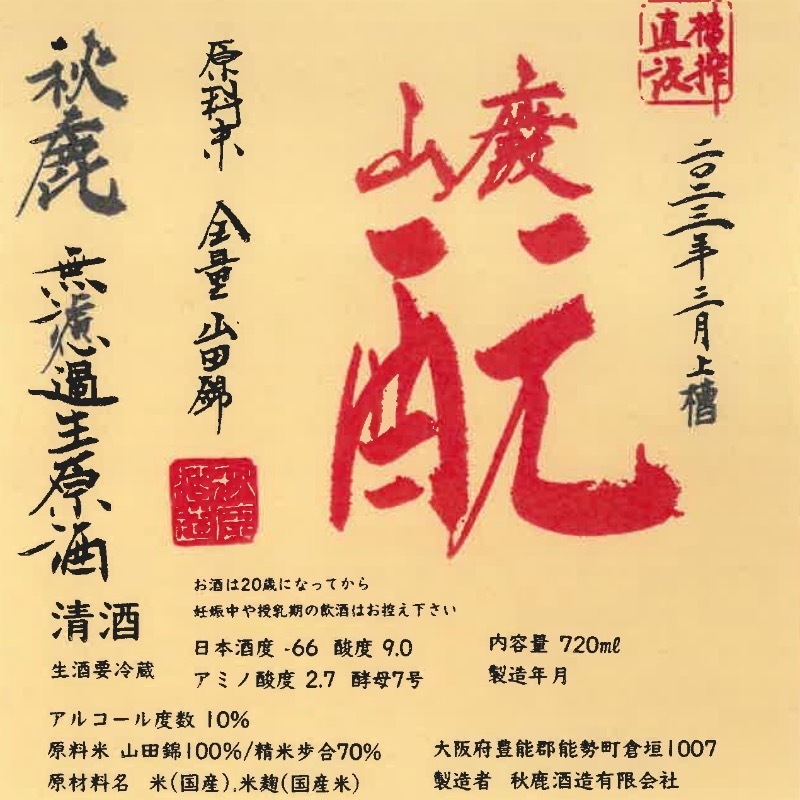 槽搾
直汲
二〇二三年三月上槽
山廃
酛
原料米 全量山田錦
秋鹿
酒造
秋鹿 無濾過生原酒
清酒
生酒要冷蔵
お酒は20歳になってから
妊娠中や授乳期の飲酒はお控え下さい
日本酒度 -66 酸度 9.0
アミノ酸度 2.7 酵母7号
内容量 720ml
製造年月
アルコール度数 10%
原料米 山田錦100%/精米歩合70%
原材料名 米(国産),米麹(国産米)
大阪府豊能郡能勢町倉垣1007
製造者 秋鹿酒造有限会社